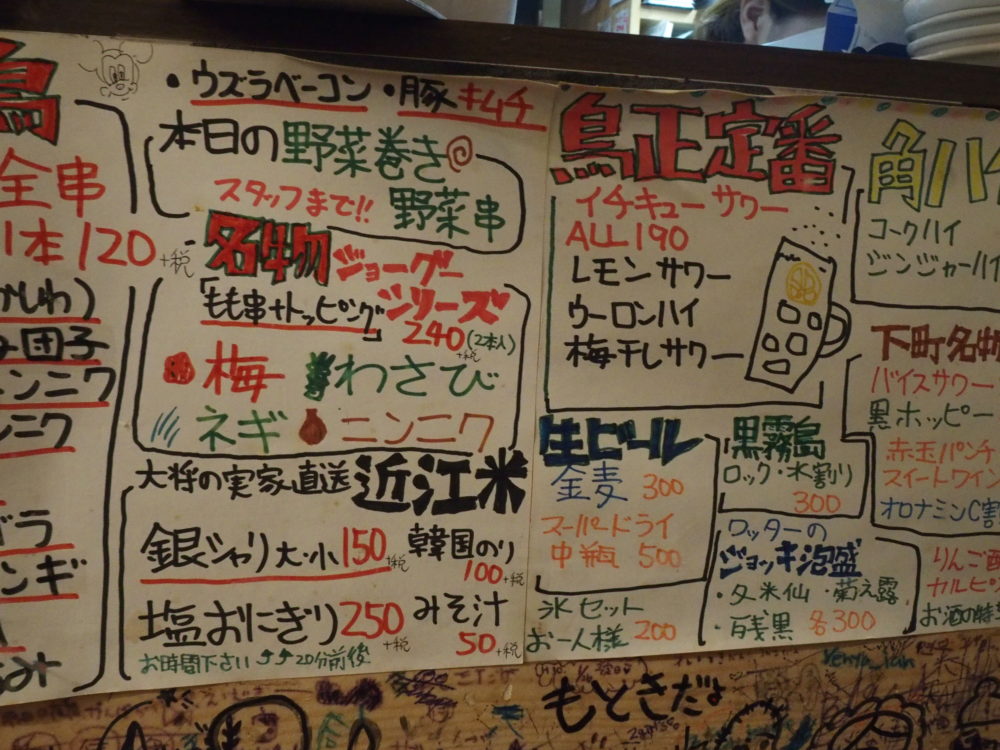 鳥
全串
1本120
+税
かしわ)
団子
ニンニク
・ウズラベーコン・豚キムチ
本日の野菜巻き@
スタッフまで!! 野菜串
名物ジョーグー
シリーズ
「もも串+トッピング」
240(2本入)
+税
梅 わさび
ネギ ニンニク
大将の実家直送 近江米
銀シャリ大・小150+税
韓国のり
100+税
塩おにぎり250+税
みそ汁
50+税
お時間下さい 20分前後
鳥正定番
イチキューサワー
ALL 190
レモンサワー
ウーロンハイ
梅干しサワー
生ビール
金麦 300
スーパードライ
中瓶 500
氷セット
お一人様 200
黒霧島
ロック・水割り
300
ロッターの
ジョッキ泡盛
・久米仙 ・菊之露
・残黒 各300
角ハイ
コークハイ
ジンジャーハイ
下町名物
バイスサワー
黒ホッピー
赤玉パンチ
スイートワイン
オロナミンC割
りんご酒
カルピ
お酒の
もときだよ